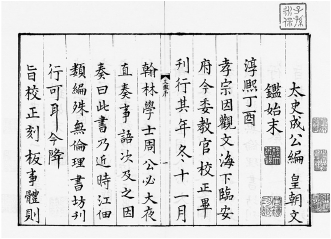 子孫
永保
太史成公編 皇朝文
鑑始末
淳熙丁酉
孝宗因觀文海下臨安
府令委教官校正畢
刊行其年冬十一月
翰林學士周公必大夜
直奏事語次及之因
奏曰此書乃近時江佃
類編殊無倫理書坊刊
行可耳今降
旨校正刻板事體則